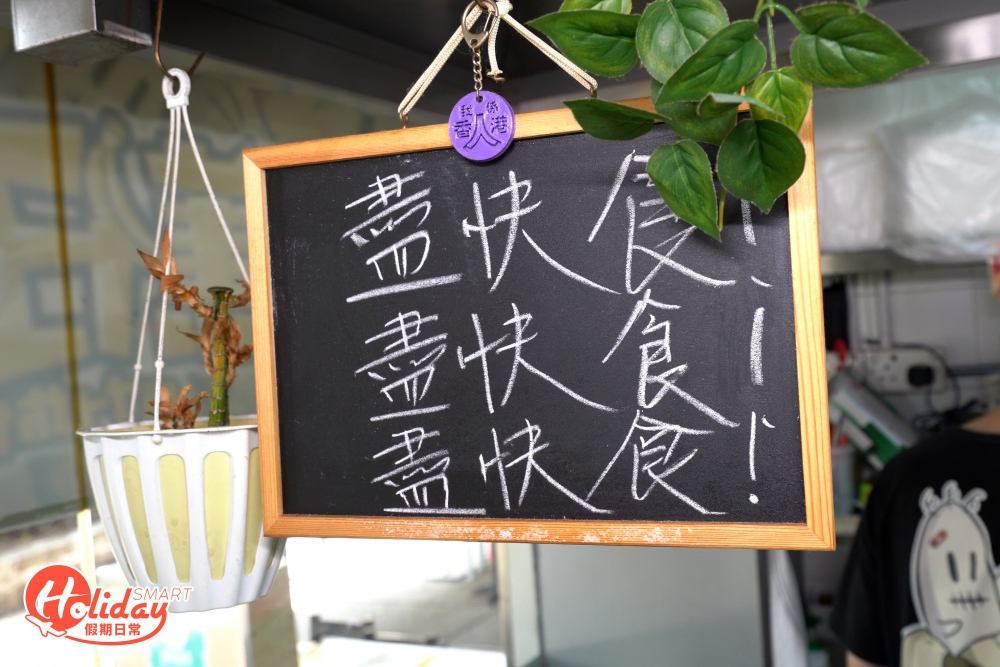 我係
香港人
盡快食!
盡快食!
盡快食!
Holiday
SMART
假期日常